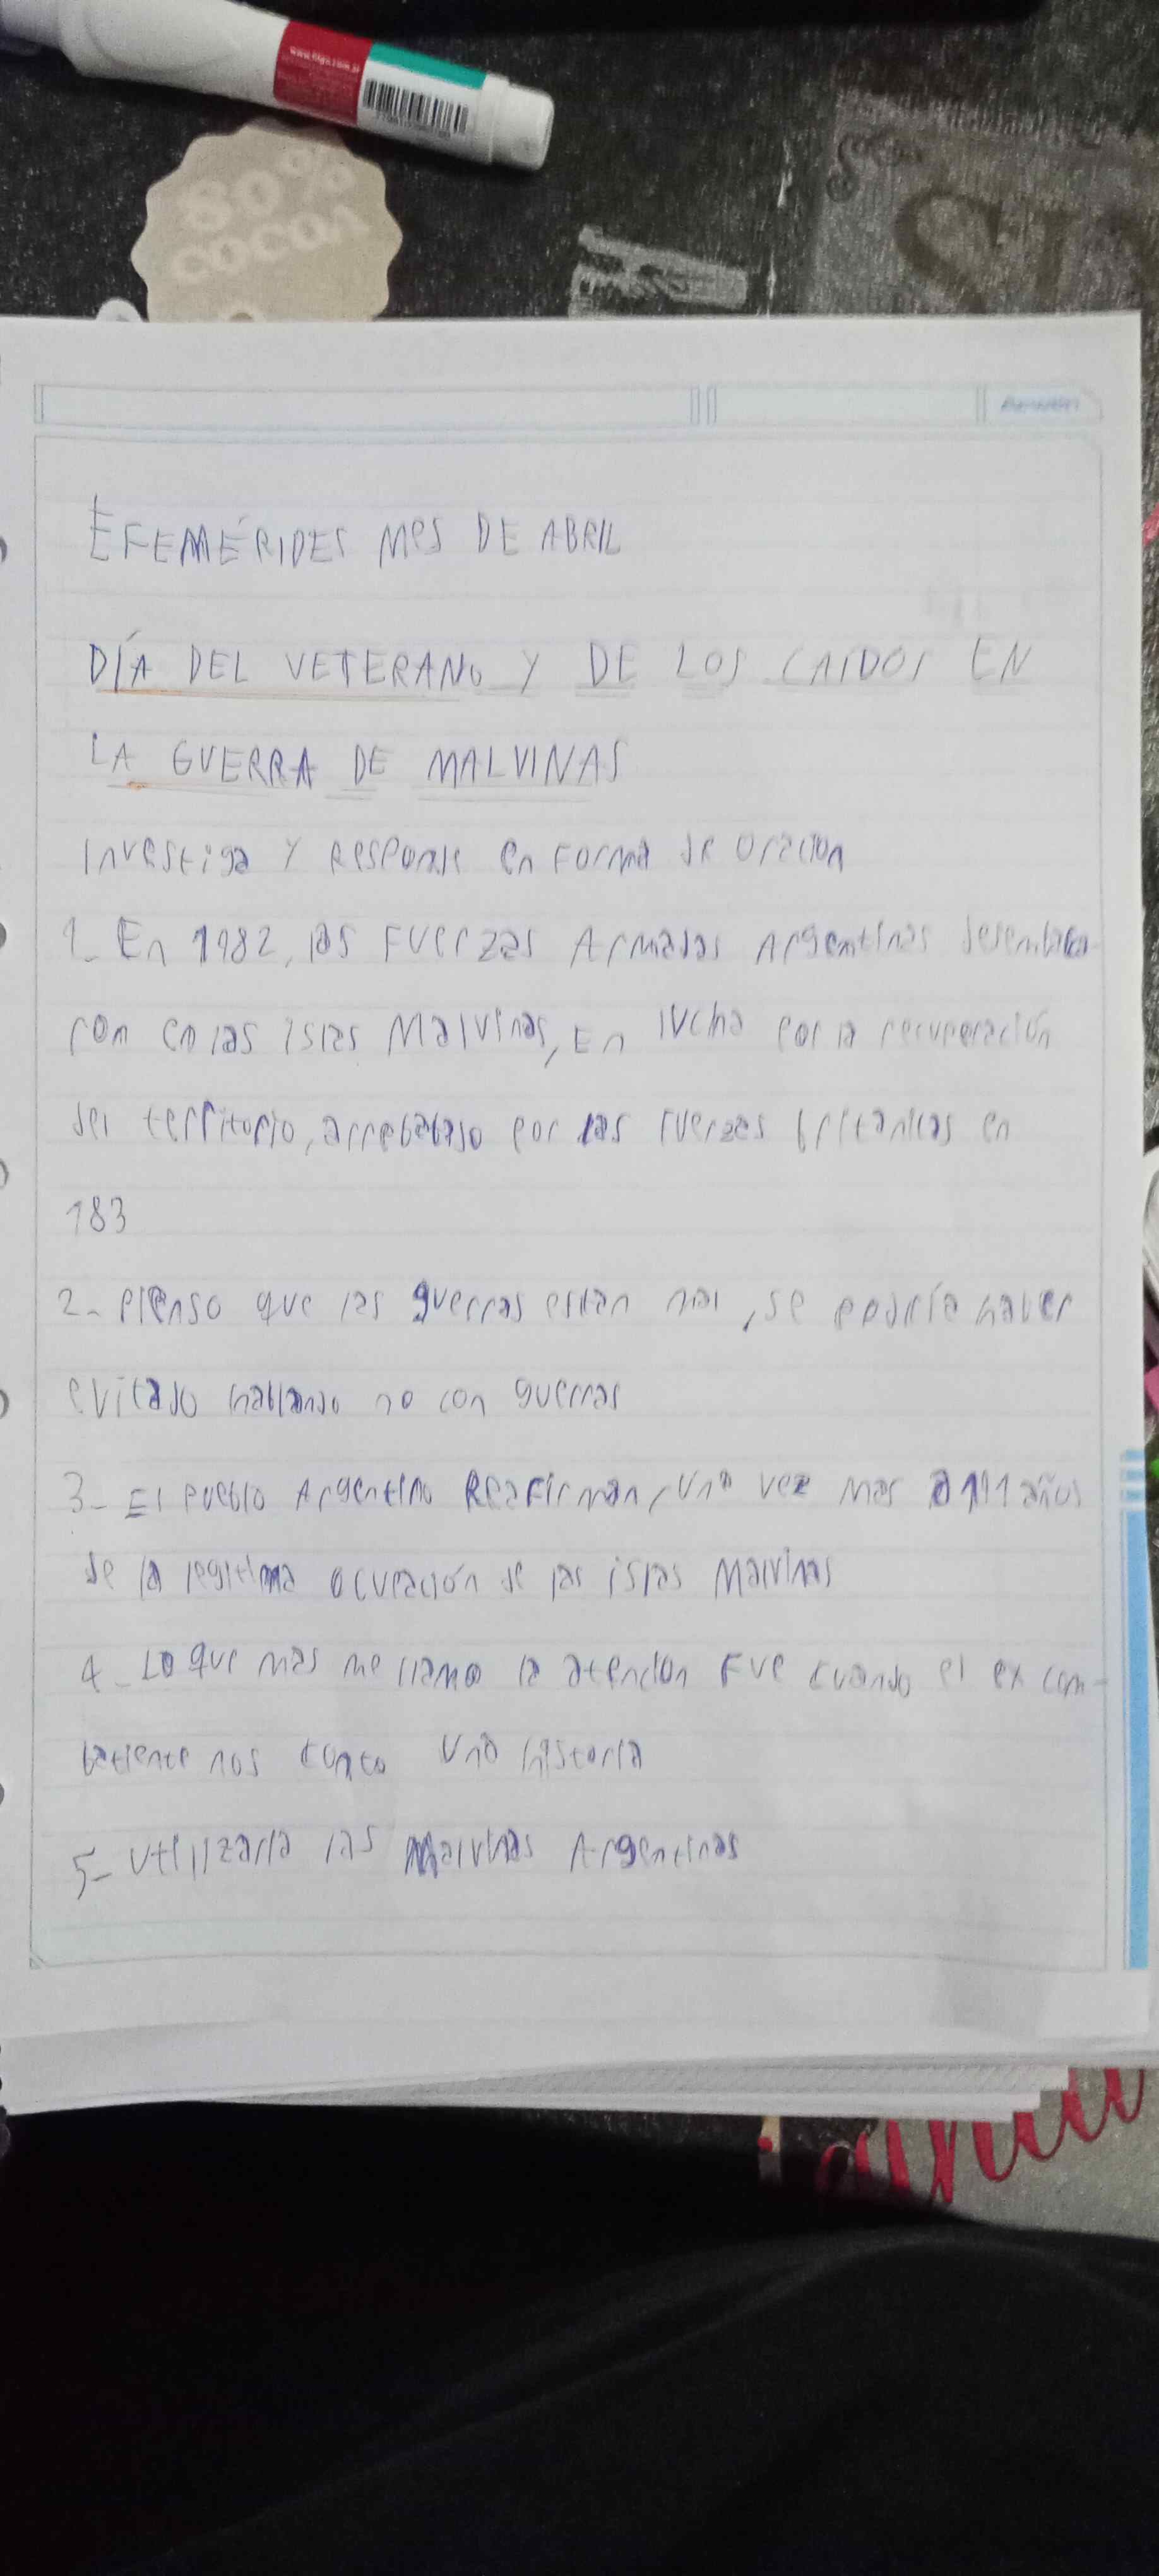 www.filgo.com.ar
80%
COCOA
EFEMÉRIDES MES DE ABRIL
DÍA DEL VETERANO Y DE LOS CAIDOS EN
LA GUERRA DE MALVINAS
Investiga Y Responde en Forma de Oracion
1- En 1982, las Fuerzas Armadas Argentinas desembarca-
ron en las islas Malvinas, En lucha por la recuperación
del territorio, arrebatado por las fuerzas britanicas en
183
2- Pienso que las guerras estan mal, se podría haber
evitado hablando no con guerras
3- El pueblo Argentino Reafirman, una vez mas a 191 años
de la legitima ocupación de las islas Malvinas
4- Lo que mas me llamo la atencion Fue cuando el ex com-
batiente nos conto una historia
5- Utilizaria las Malvinas Argentinas